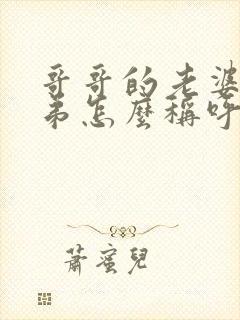 哥哥的老婆
弟怎麼稱呼
蕭蜜兒